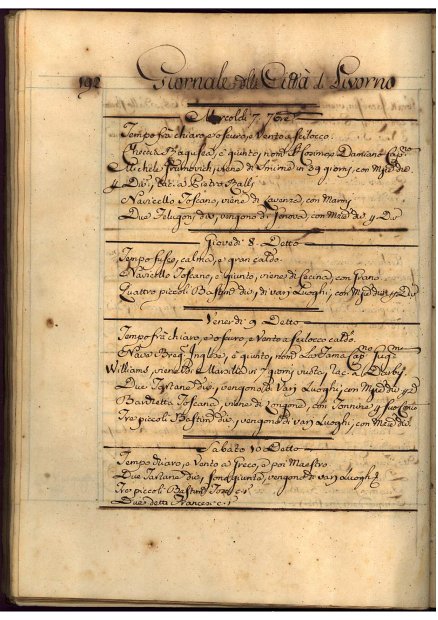 192 Giornale della Città di Livorno
Mercoldi 7. 7bre
Tempo frà chiaro, e oscuro, e Vento a scilocco.
Checchia Ragusea, è giunto, nom.ª S. Cosimo e Damiano Cap.no
Michele viene di Smirne in 39 giorni, con M.zie div.e
Pietro Balbi
Navicello Toscano, viene di Lavenza, con Marmi
Due Felugoni div.i vengono di Genova, con M.zie div.e
Giovedi 8. Detto
Tempo fusco, calma, e gran caldo.
Navicello Toscano, è giunto, viene di Cecina, con Grano.
Quattro piccoli Bastim.ti div.i, di varj Luoghi, con M.zie div.e
Venerdi 9 Detto
Tempo frà chiaro, e oscuro, e Vento a scilocco caldo.
Nave Ingl.e, è giunto, nom.ª La Fama Cap.no
Williams, viene di Marsilia in 7 giorni
Due Tartane div.e, vengono di varj Luoghi, con M.zie div.e
Barchetta Toscana, viene di Longone, con Tonnina
Tre piccoli Bastim.ti div.i, vengono di varj Luoghi, con M.zie div.e
Sabato 10 Detto
Tempo chiaro, e Vento a Greco, e poi Maestro
Due Tartane div.e, sono giunte, vengono di varj Luoghi
Tre piccoli Bastim.ti Tosc.i
Due detti Francesi